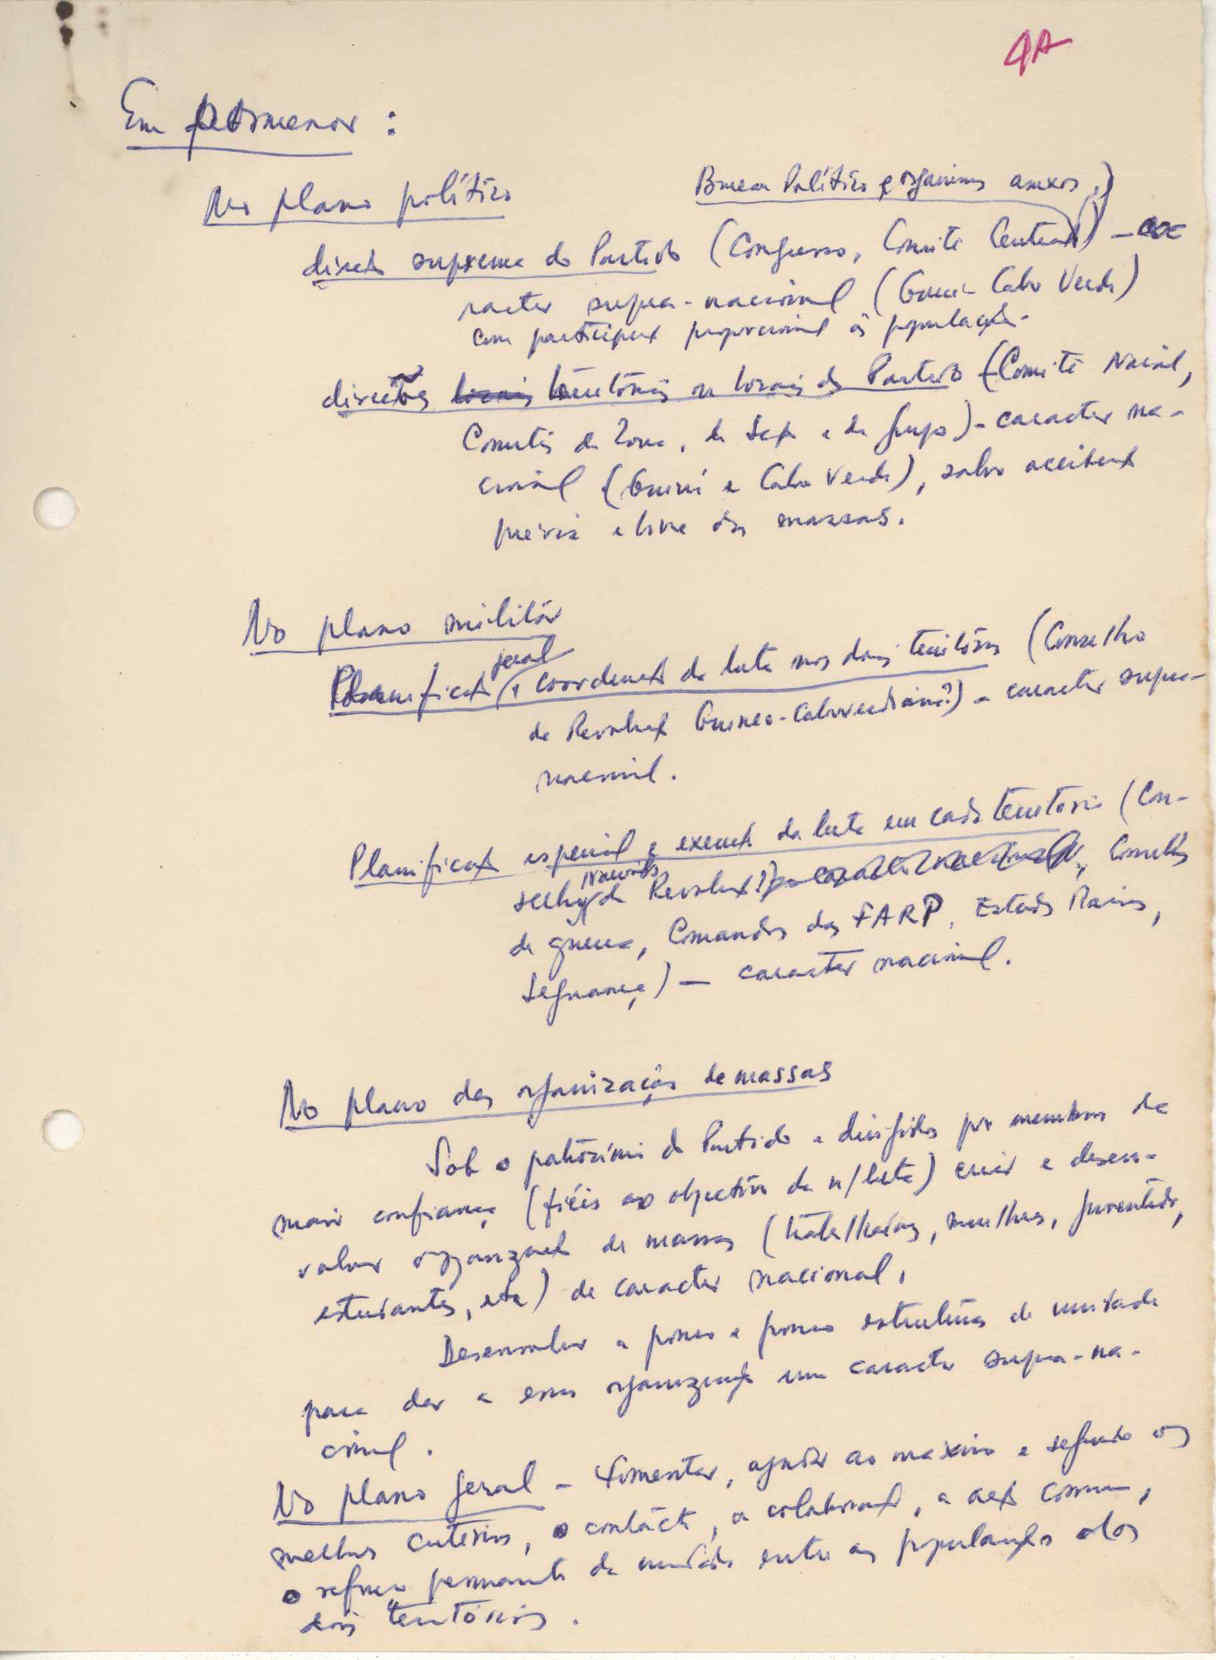 4A
Em pormenor :
No plano político
Bureau Político e organismos anexos,
direcção suprema do Partido (Congresso, Comité Central) — ca
racter supra-nacional (Guiné Cabo Verde)
com participação proporcional às populações.
direcções locais territoriais ou locais do Partido (Comité Nacional,
Comités de Zona, de Secção e de grupo) - caracter na-
cional (Guiné e Cabo Verde), salvo aceitação
prévia e livre das massas.
No plano militar
geral
Planificação e coordenação da luta nos dois territórios (Conselho
da Revolução Guineo-Caboverdiana?) - caracter supra-
nacional.
Planificação especial e execução da luta em cada território (Con-
selhos da Revolução?) caracter nacional, Conselhos
nacionais
de guerra, Comandos das FARP, Estados Maiores,
Segurança) — caracter nacional.
No plano das organizações de massas
Sob o patrocínio do Partido e dirigidas por membros de
maior confiança (fiéis aos objectivos da n/luta) criar e desen-
volver organizações de massas (trabalhadores, mulheres, juventude,
estudantes, etc) de caracter nacional.
Desenvolver a pouco e pouco estruturas de unidade
para dar a essas organizações um caracter supra-na-
cional.
No plano geral - Fomentar, ajudar ao máximo e segundo os
melhores critérios, o contacto, a colaboração, a acção comum,
o reforço permanente da unidade entre as populações dos
dois territórios.